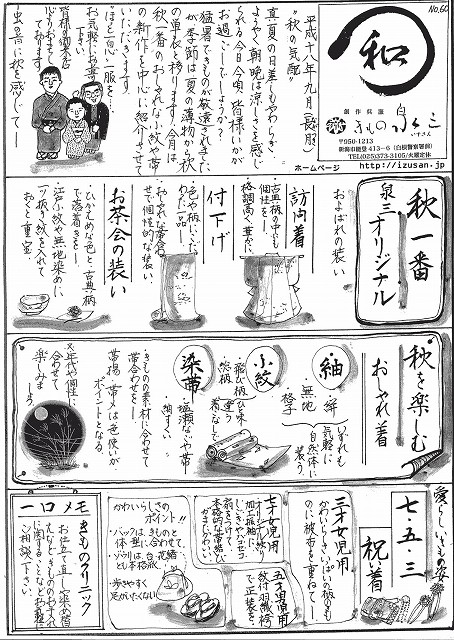 No.60
和
創作呉服
きもの 泉三
いずさん
〒950-1213
TEL(025)373-3105/火曜定休
ホームページ http://izusan.jp
平成十八年九月（長月）
"秋の気配"
真夏の日差しもやわらぎ、
ようやく朝晩は涼しさを感じ
られる今日今頃、皆様いかが
お過ごしでしょうか？
猛暑できものが敬遠されまし
たが季節は夏の薄物から
の単衣と移ります。今月は
秋一番のおしゃれな小紋や帯
の新作を中心に紹介させて
いただきます。
お気軽にお立寄り
下さい。
虫の音に秋を感じて―
秋一番
泉三オリジナル
およばれの装い
訪問着
・古典柄の中にも
個性を。
格調高く、華かに
付下げ
色や柄にこだ
わった一品―。
おしゃれな帯合わ
せで個性的な装い
お茶会の装い
・ひかえめな色と古典柄
で落着きを―。
江戸小紋や無地染めに
一ツ紋を入れて
おくと重宝。
秋を楽しむ
おしゃれ着
紬
・絣
・無地
・格子
いずれも
気軽に
自然体に
装う。
小紋
・飛び柄
・総柄
趣味
違う
着こなし
染帯
・塩瀬・ちりめん帯
・紬すくい
・きものの素材に合せて
帯合わせを―
帯揚・帯〆は色使いが
ポイントとなる。
※年代や個性に
合わせて
楽しみま
しょう
愛らしいきもの姿
七・五・三
祝い着
三才女児用
かわいらしさいっぱいの柄のもの
に、被布を重ねて―
七才女児用
本格的な帯結びが
かわいらしい。
五才男児用
紋付羽織袴
で正装を。
かわいらしさの
ポイント!!
・バッグはきものと
一体で買い合わせて
・ぞうりは、台・花緒
とも本格派
歩きやすく
足がいたくない
一口メモ
きものクリニック
お仕立て直し・染め替
えなどきもののお手入
れに関することなどお気軽に
ご相談下さい。